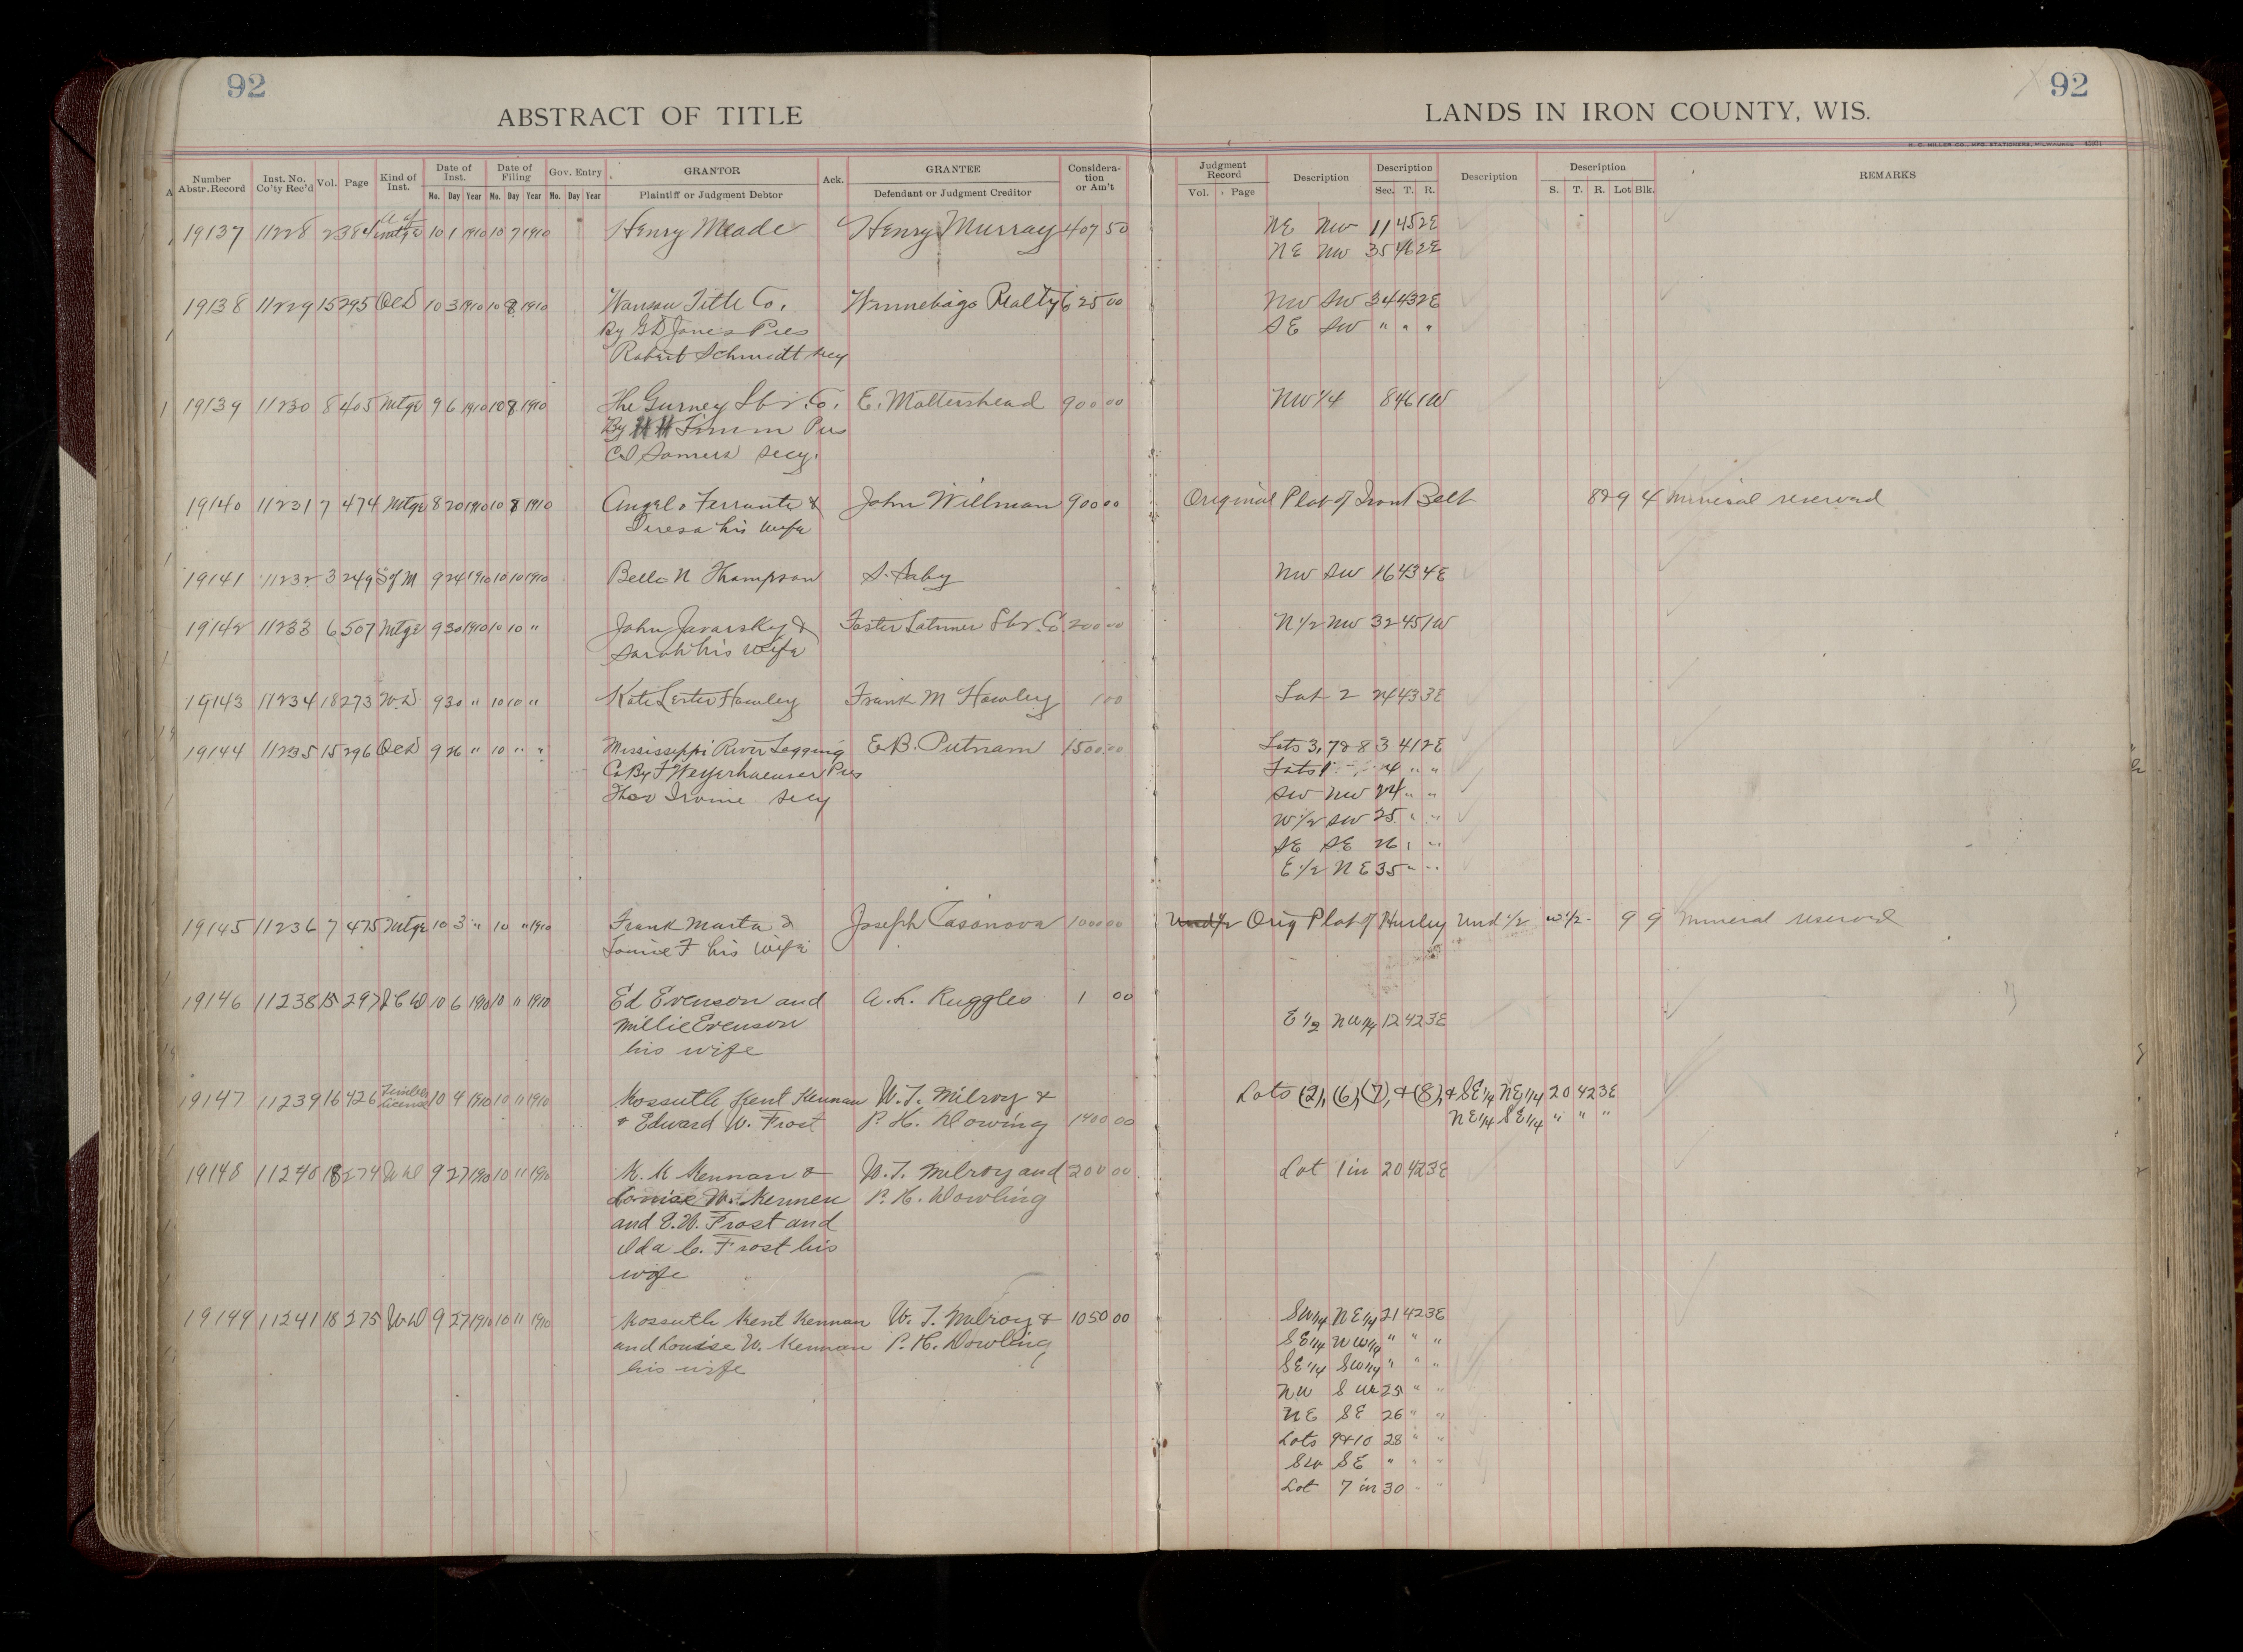 92
92
ABSTRACT OF TITLE
LANDS IN IRON COUNTY, WIS.
H. C. MILLER CO., MFG. STATIONERS, MILWAUKEE
Number Abstr. Record | Inst. No. Co'ty Rec'd | Vol. | Page | Kind of Inst. | Date of Inst. Mo. Day Year | Date of Filing Mo. Day Year | Gov. Entry Mo. Day Year | GRANTOR Plaintiff or Judgment Debtor | Ack. | GRANTEE Defendant or Judgment Creditor | Consideration or Am't | Judgment Record Vol. Page | Description | Description Sec. T. R. | Description | Description S. T. R. Lot Blk. | REMARKS
19137 11228 2 384 A of mtge 10 1 1910 10 7 1910 Henry Meade Henry Murray 407 50 NE NW 11 45 2E
NE NW 35 46 2E
19138 11229 15 295 QCD 10 3 1910 10 8 1910 Wausau Title Co. Winnebago Realty 625 00 NW SW 34 43 2E
By G D Jones Pres SE SW " " "
Robert Schmidt Secy
19139 11230 8 405 Mtge 9 6 1910 10 8 1910 The Gurney Lbr. Co. E. Mottershead 900 00 NW 1/4 8 46 1W
By Pres
C S Somers Secy.
19140 11231 7 474 Mtge 8 20 1910 10 8 1910 Angelo Ferrante & John Willman 900 00 Original Plat of Iron Belt 8&9 4 Mineral reserved
Teresa his wife
19141 11232 3 249 S of M 9 24 1910 10 10 1910 Belle N Thompson NW SW 16 43 4E
19142 11233 6 507 Mtge 9 30 1910 10 10 " John Javorsky & Foster Latimer Lbr. Co 200 00 N 1/2 NW 32 45 1W
Sarah his wife
19143 11234 18 273 W.D 9 30 " 10 10 " Kate Lester Hawley Frank M Hawley 1 00 Lot 2 24 43 3E
19144 11235 15 296 QCD 9 26 " 10 " " Mississippi River Logging E.B. Putnam 1500 00 Lots 3, 7 & 8 3 41 2E
Co By F Weyerhaeuser Pres Lots 1 4 " "
Thos Irvine Secy SW NW 24 " "
W 1/2 SW 25 " "
SE SE 26 " "
E 1/2 NE 35 " "
19145 11236 7 475 Mtge 10 3 " 10 " 1910 Frank Marta & Joseph Casanova 1000 00 Und 1/2 Orig Plat of Hurley Und 1/2 W 1/2 9 9 Mineral reserved
Louise F his wife
19146 11238 15 297 10 6 1910 10 11 1910 Ed Evenson and A. L. Ruggles 1 00
Millie Evenson E 1/2 NW 1/4 12 42 3E
his wife
19147 11239 16 426 Timber License 10 4 1910 10 11 1910 Kossuth Kent Kennan W. T. Milroy & Lots (2), (6), (7), & (8), & SE 1/4 NE 1/4 20 42 3E
& Edward W. Frost P. H. Dowing 1400 00 NE 1/4 SE 1/4 " " "
19148 11240 18 274 W D 9 27 1910 10 11 1910 K. K Kennan & W. T. Milroy and 200 00 Lot 1 in 20 42 3E
Louise W. Kennen P. H. Dowling
and E. W. Frost and
Ida C. Frost his
wife
19149 11241 18 275 W D 9 27 1910 10 11 1910 Kossuth Kent Kennan W. T. Milroy & 1050 00 SW 1/4 NE 1/4 21 42 3E
and Louise W. Kennan P. H. Dowling SE 1/4 NW 1/4 " " "
his wife SE 1/4 SW 1/4 " " "
NW SW 25 " "
NE SE 26 " "
Lots 9 & 10 28 " "
SW SE " " "
Lot 7 in 30 " "